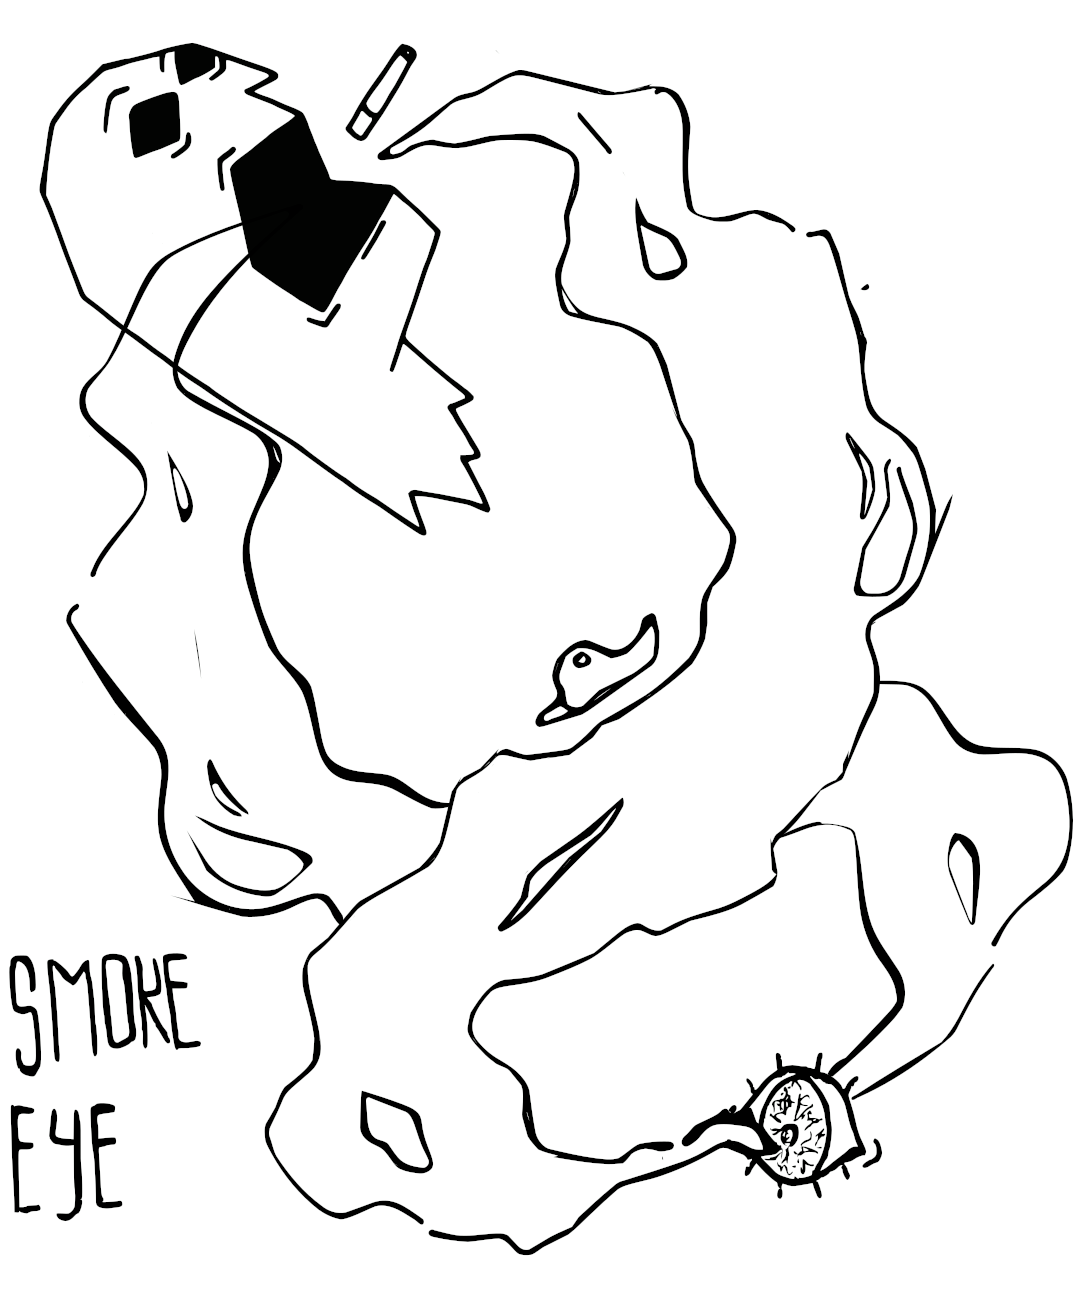 SMOKE
EYE